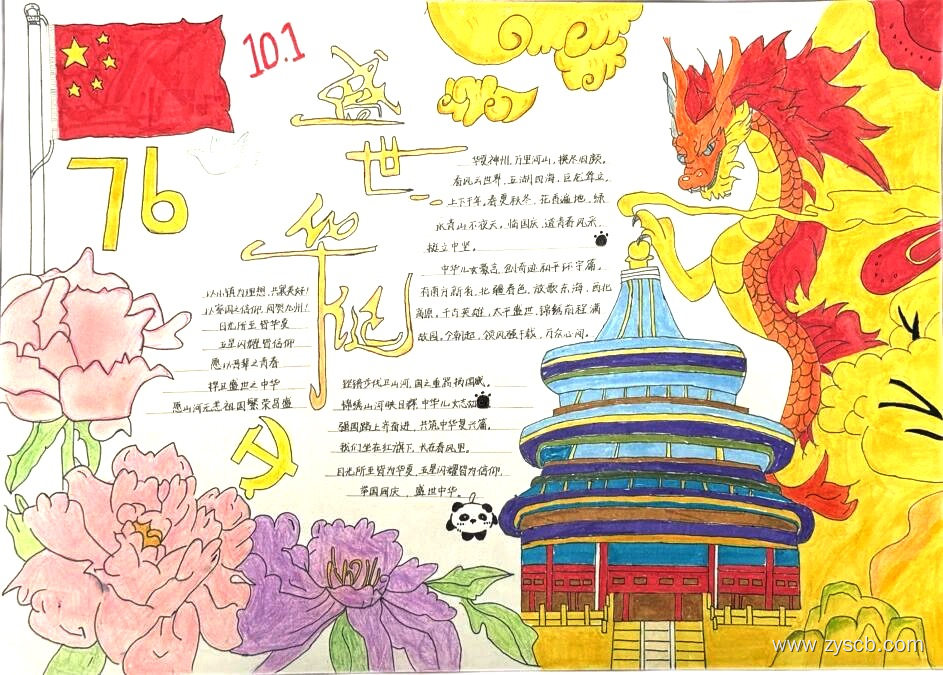 10.1
76
盛世华诞
华夏神州,万里河山,横尽目颜。
看风云世界,五湖四海,巨龙耸立。
上下千年,春夏秋冬,花香遍地,绿
水青山不夜天,临国庆,道青春风采,
挺立中坚。
中华儿女豪言,创奇迹和平环宇篇。
有南方新秀,北疆春色,放歌东海,西北
高原,千古英雄,太平盛世,锦绣前程满
故园,今朝起,领风骚千载,万众心间。
以小镇为理想,共襄美好!
以家国之信仰,同贺九州!
目光所至皆华夏
五星闪耀皆信仰
愿以吾辈之青春
捍卫盛世之中华
愿山河无恙祖国繁荣昌盛
铿锵步伐卫山河,国之重器扬国威。
锦绣山河映日辉,中华儿女志如
强国路上齐奋进,共筑中华复兴篇。
我们坐在红旗下,长在春风里。
目光所至皆为华夏,五星闪耀皆为信仰。
举国同庆,盛世中华。
www.zyscb.com